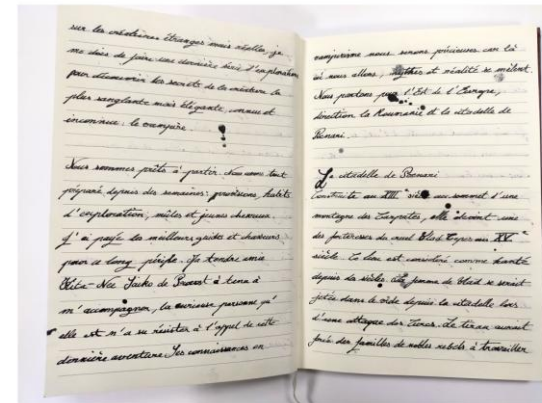 sur les créatures étranges mais réelles, je
me dois de faire une dernière série d'exploration
pour découvrir les secrets de la créature la
plus sanglante mais élégante, connue et
inconnue : le vampire
Nous sommes prêts à partir. Nous avons tout
préparé depuis des semaines : provisions, habits
d'exploration, mules et jeunes chevaux.
J'ai payé les meilleurs guides et chasseurs
pour a long périple. Ma tendre amie
de a tenu à
m'accompagner, la curieuse personne qu'
elle est n'a su résister à l'appel de cette
dernière aventure. Ses connaissances en
vampirisme nous seront précieuses car là
où nous allons, mythes et réalité se mêlent.
Nous partons pour l'Est de l'Europe,
direction la Roumanie et la citadelle de
Poenari.
La citadelle de Poenari
Construite au XIII siècle au sommet d'une
montagne des Carpates, elle devint une
des forteresses du cruel Vlad Tepes au XV
siècle. Ce lieu est considéré comme hanté
depuis des siècles. La femme de Vlad se serait
jetée dans le vide depuis la citadelle lors
d'une attaque des Turcs. Le tyran aurait
forcé des familles de nobles rebels à travailler